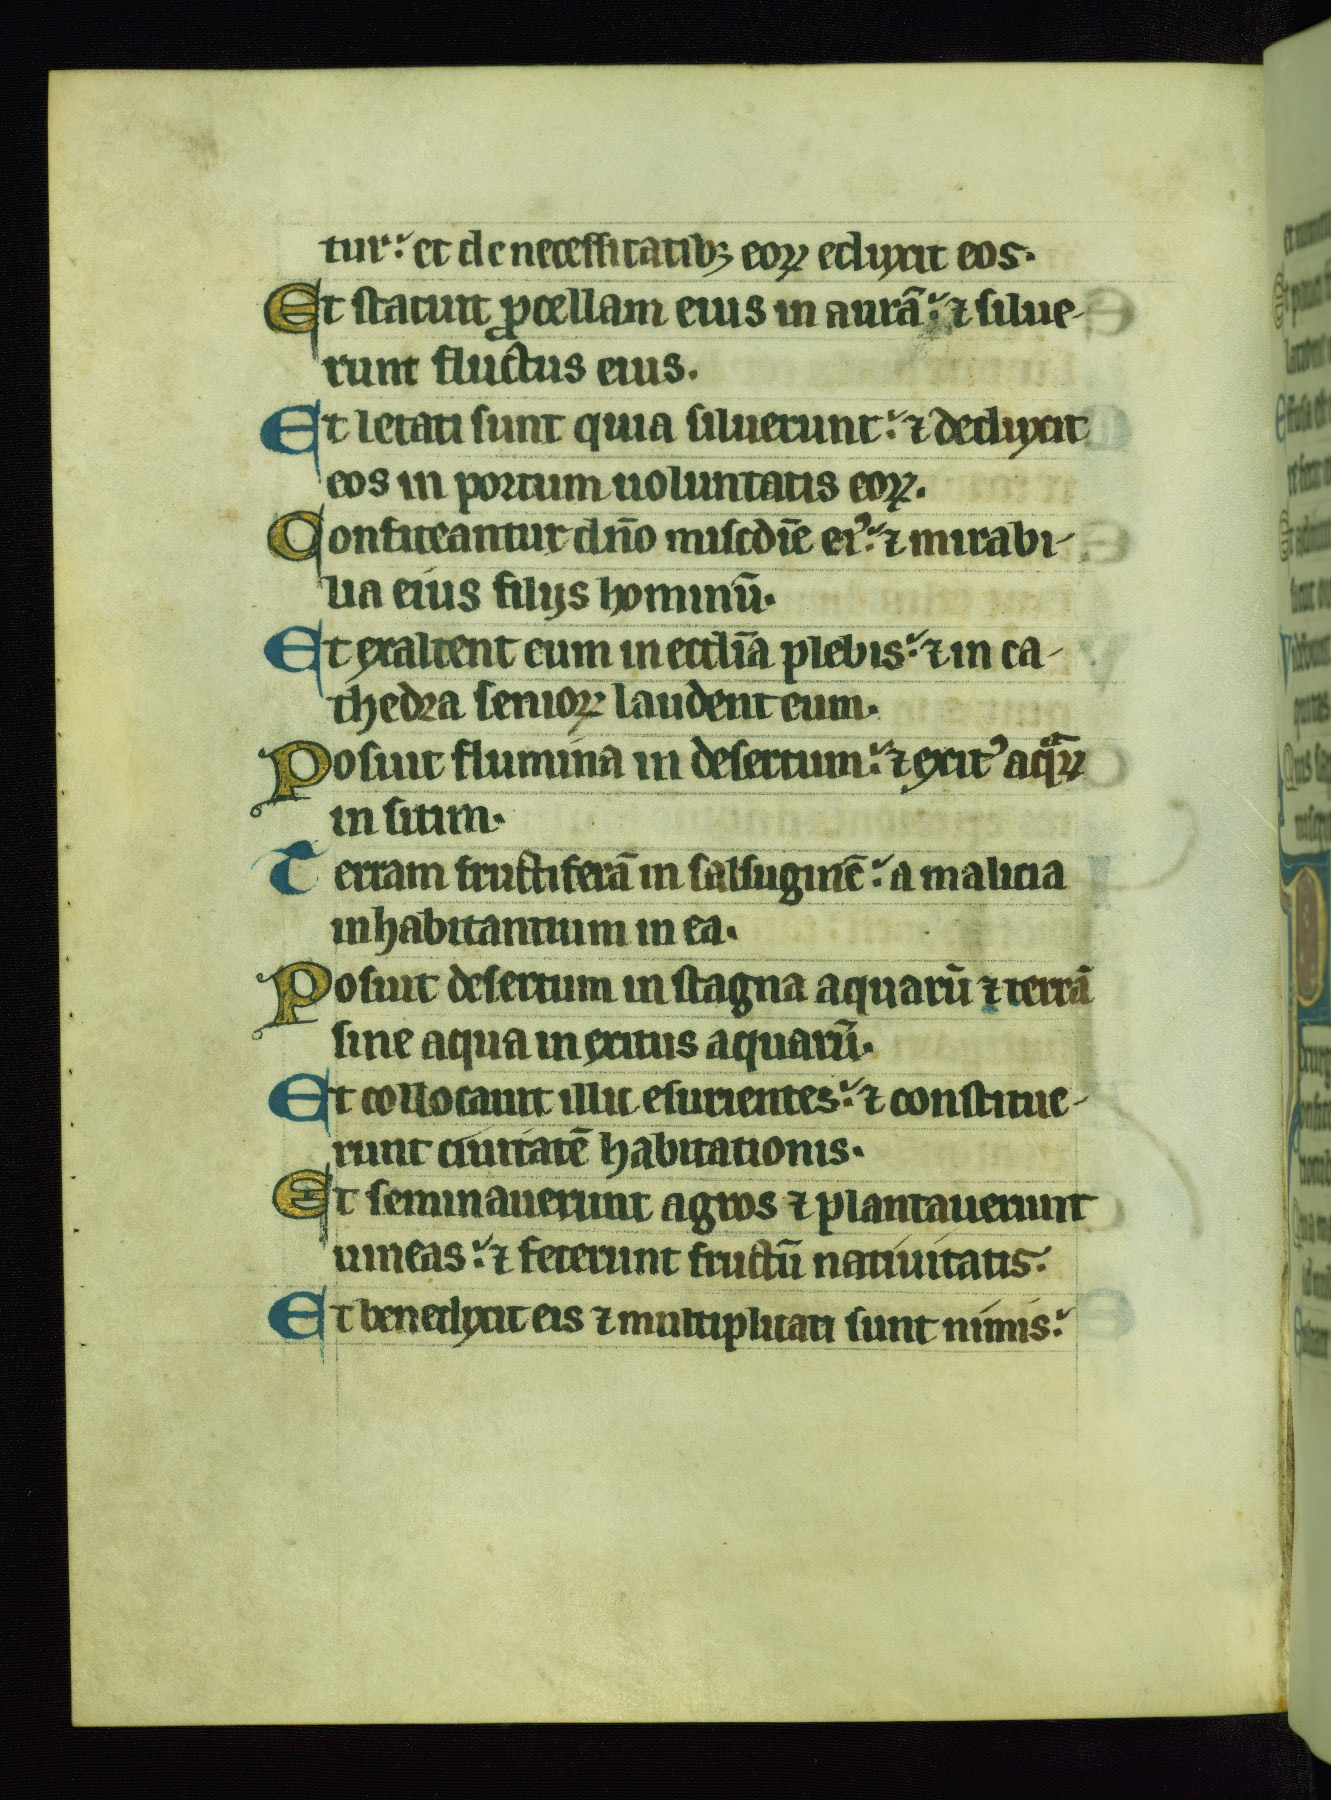 tur: et de necessitatibꝫ eoꝝ eduxit eos.
Et statuit ꝓcellam eius in aurã: ⁊ silue-
runt fluctus eius.
Et letati sunt quia siluerunt: ⁊ deduxit
eos in portum uoluntatis eoꝝ.
Confiteantur dño miscdiẽ ei᾿: ⁊ mirabi-
lia eius filijs hominũ.
Et exaltent eum in ecclĩa plebis: ⁊ in ca-
thedra senioꝝ laudent eum.
Posuit flumina in desertum: ⁊ exit᾿ aqͣꝝ
in sitim.
Terram fructiferã in salsuginẽ: a malicia
inhabitantium in ea.
Posuit desertum in stagna aquarũ ⁊ terrã
sine aqua in exitus aquarũ.
Et collocauit illic esurientes: ⁊ constitue-
runt ciuitatẽ habitationis.
Et seminauerunt agros ⁊ plantauerunt
uineas: ⁊ fecerunt fructũ natiuitatis:
Et benedixit eis ⁊ multiplicati sunt nimis: